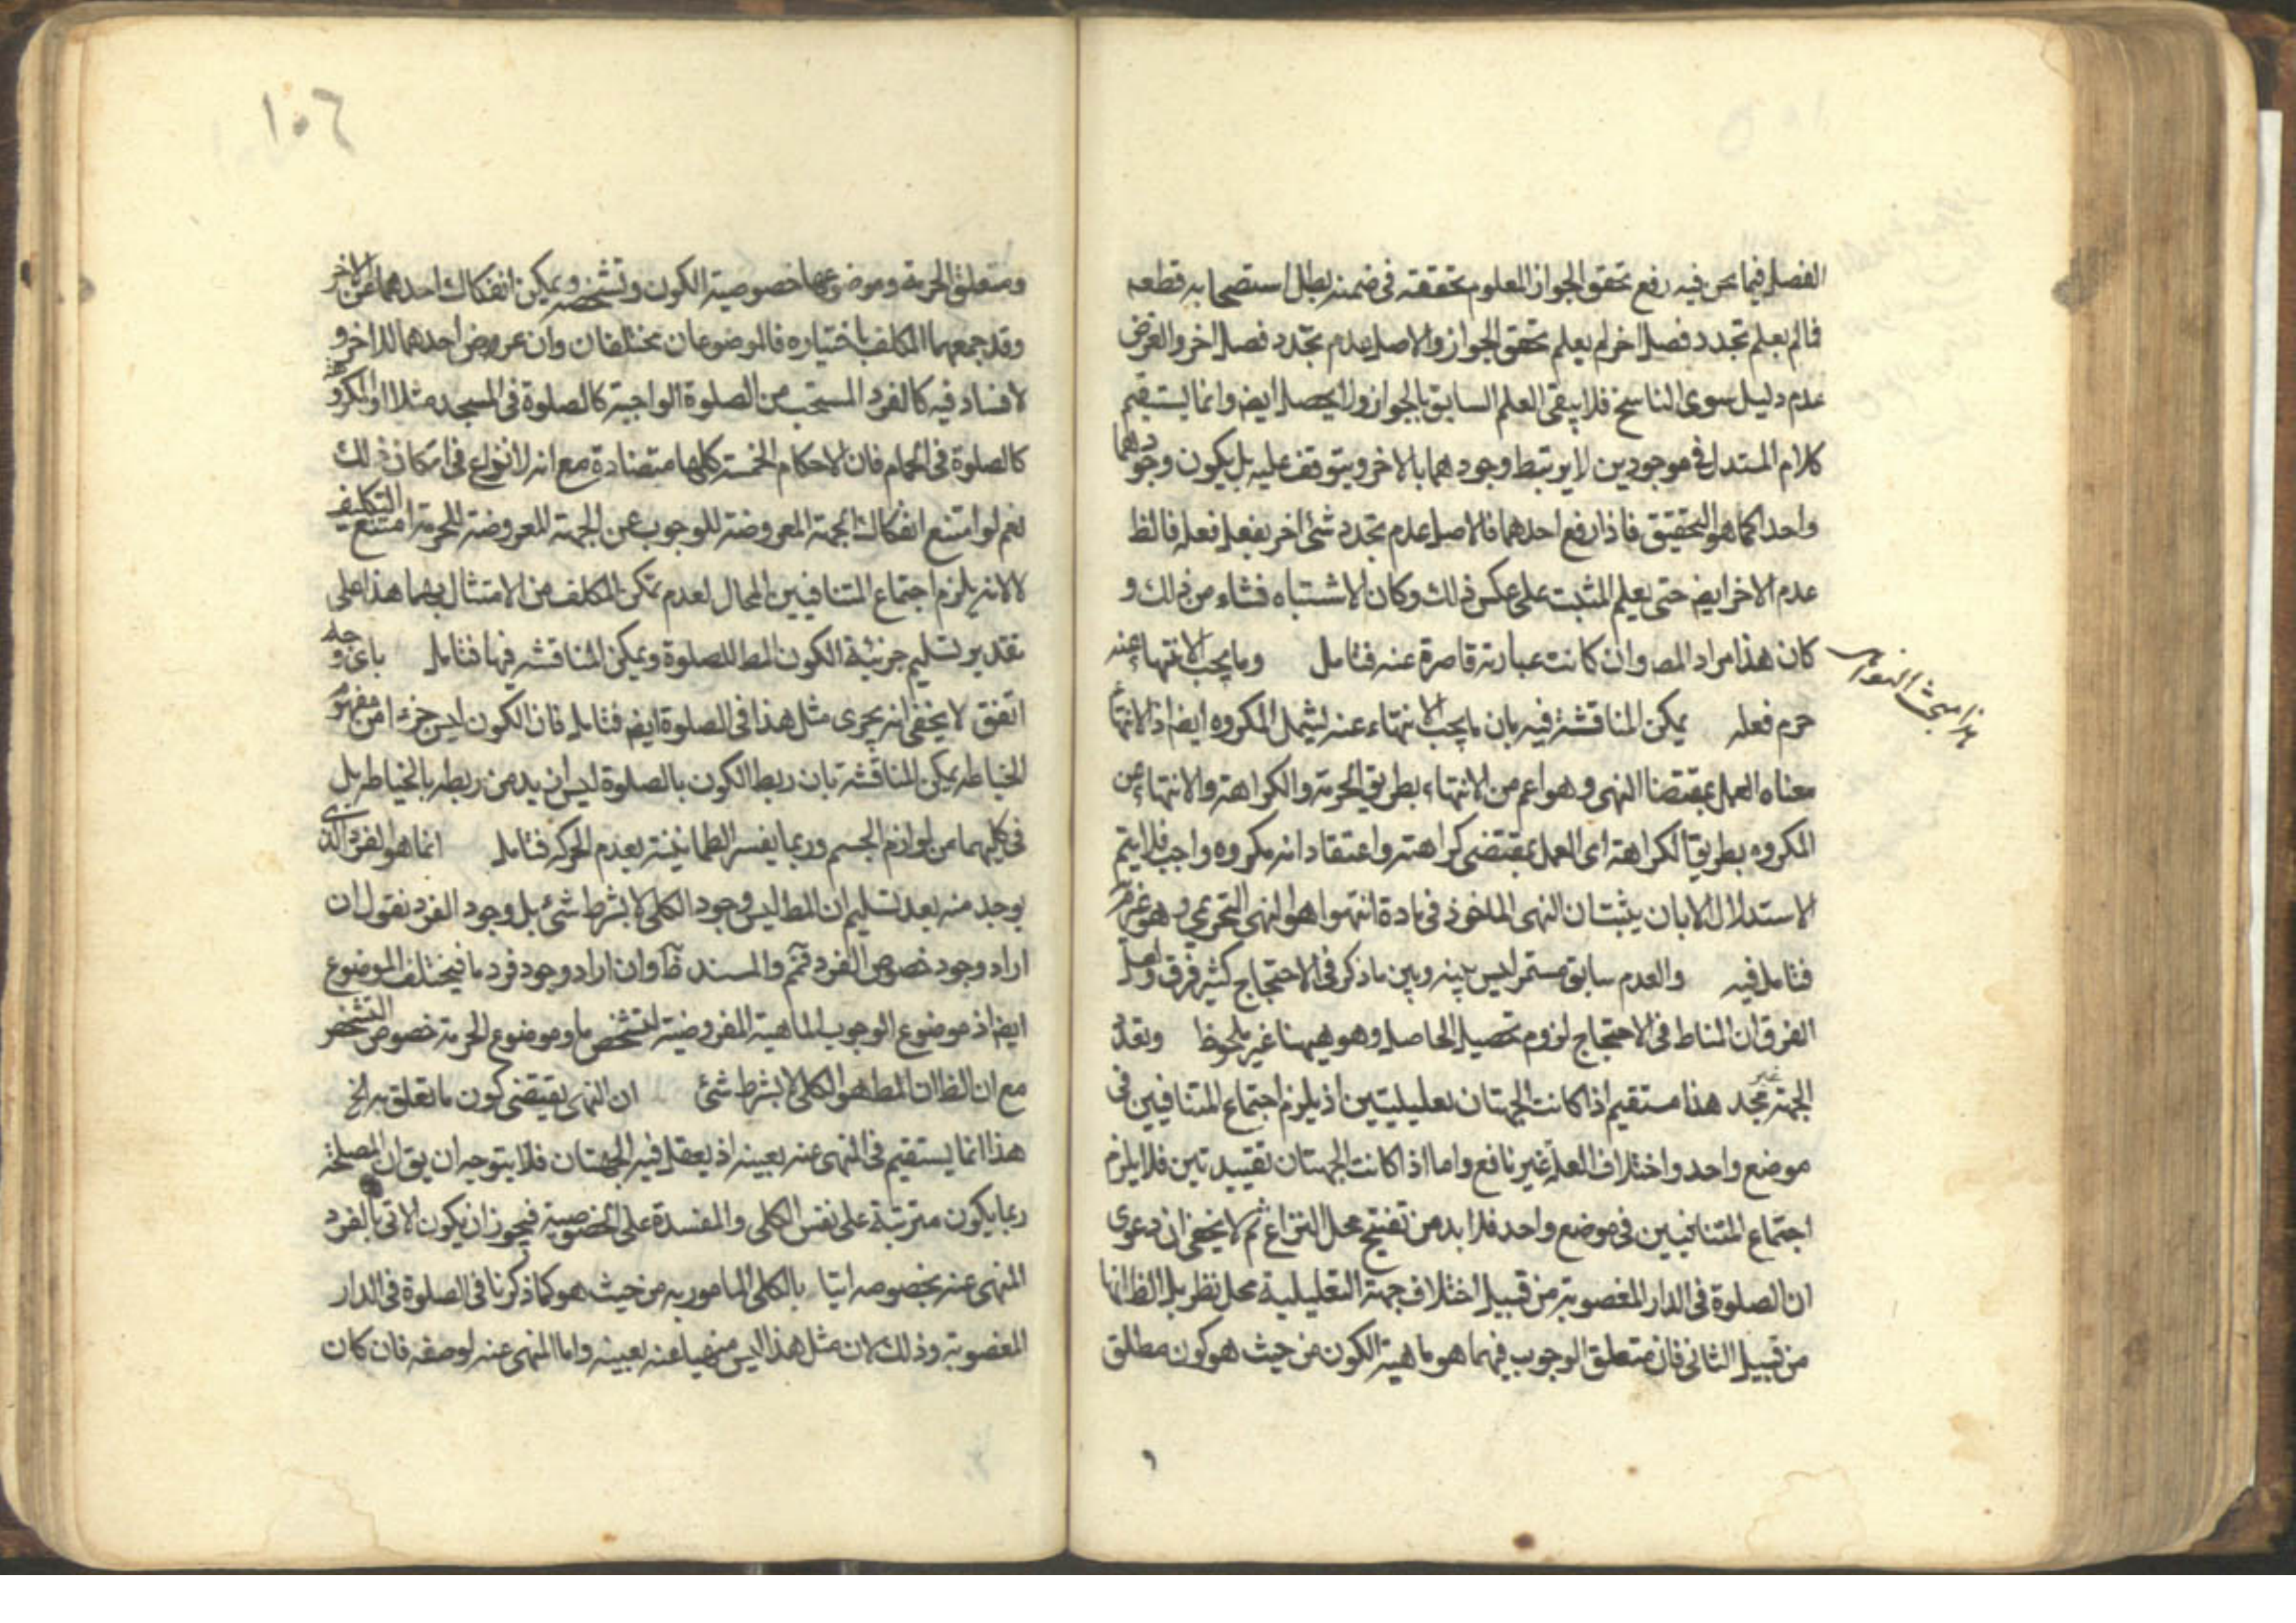 الفصل فيما نحن فيه رفع تحقق الجواز المعلوم تحققه في ضمنه بطل استصحابه قطعه
فالم يعلم تجدد فصل اخر لم يعلم تحقق الجواز والاصل عدم تجدد فصل اخر والغرض
عدم دليل سوى الناسخ فلا يبقى العلم السابق بالجواز ولا يحصل ايضا وانما يستقيم
كلام المستدل في موجودين لا يرتبط وجود هما بالاخر ويتوقف عليه بل يكون وجودهما
واحدا كما هو التحقيق فاذا رفع احدهما فالاصل عدم تجدد شئ اخر بفعل فعله فالظ
عدم الاخر ايض حتى يعلم المثبت على عكس ذلك وكان الاشتباه فشاء من ذلك و
كان هذا مراد المص وان كانت عبارته قاصرة عنه فتامل وما يجب الانتهاء عنه
هذا مبحث النواهى
حرم فعله يمكن المناقشة فيه بان ما يجب الانتهاء عنه يشمل المكروه ايض اذ الانتهاء
معناه العمل بمقتضا النهى وهو اعم من الانتهاء بطريق الحرمة والكراهة والانتهاء عن
المكروه بطريق الكراهة اى العمل بمقتضى كراهته واعتقاد انه مكروه واجب فلا يتم
الاستدلال الا بان يثبت ان النهى الماخوذ في مادة انتهوا هو النهى التحريمي وهو غير
فتامل فيه والعدم سابق مستمر ليس بينه وبين ما ذكر في الاحتجاج كثير فرق واصل
الفرق ان المناط في الاحتجاج لزوم تحصيل الحاصل وهو هيهنا غير ملحوظ وتعدد
الجهة غير مجد هذا مستقيم اذا كانت الجهتان تعليليتين اذ يلزم اجتماع المتنافيين في
موضع واحد واختلاف العلة غير نافع واما اذا كانت الجهتان تقييديتين فلا يلزم
اجتماع المتنافيين في موضع واحد فلا بد من تنقيح محل النزاع ثم لا يخفى ان دعوى
ان الصلوة في الدار المغصوبة من قبيل اختلاف جهة التعليلية محل نظر بل الظ انها
من قبيل الثانى فان متعلق الوجوب فيهما هو ماهية الكون من حيث هو كون مطلق
و
١٠٦
ومتعلق الحرمة وموضوعها خصوصية الكون وتشخصه ويمكن انفكاك احدهما عن الاخر
وقد جمعهما المكلف باختياره فالموضوعان مختلفان وان عروض احدهما للاخر و
لا فساد فيه كالفرد المستحب من الصلوة الواجبة كالصلوة في المسجد مثلا او المكروهة
كالصلوة في الحمام فان الاحكام الخمسة كلها متضادة مع انه لا نزاع في امكان ذلك
نعم لو امتنع انفكاك الجهة المعروضة للوجوب عن الجهة المعروضة للحرمة امتنع التكليف
لا لانه يلزم اجتماع المتنافيين المحال لعدم تمكن المكلف من الامتثال بهما هذا على
تقدير تسليم جزئية الكون المط للصلوة ويمكن المناقشه فيها فتامل باى وجه
اتفق لا يخفى انه يجرى مثل هذا في الصلوة ايض فتامل فان الكون ليس جزءا من مفهوم
الخياطه يمكن المناقشة بان ربط الكون بالصلوة ليس ازيد من ربطه بالخياطه بل
في كليهما من لوازم الجسم وربما يفسر الطمانينة بعدم الحركه فتامل انما هو الفرد الذى
يوجد منه بعد تسليم ان المط ليس وجود الكلى لا بشرط شئ بل وجود الفرد نقول ان
اراد وجود خصوص الفرد فتم والمسند ظ وان اراد وجود فرد ما فيختلف الموضوع
ايض اذ موضوع الوجوب الماهية المفروضية لتشخص ما وموضوع الحرمة خصوص التشخص
مع ان الظ ان المط هو الكلى لا بشرط شئ ان النهى يقتضى كون ما تعلق به الخ
هذا انما يستقيم في المنهى عنه بعينه اذ يعقل فيه الجهتان فلا يتوجه ان يق ان المصلحة
ربما يكون مترتبة على نفس الكلى والمفسدة على الخصوصية فيجوز ان يكون الاتى بالفرد
المنهى عنه بخصوصه اتيا بالكلى المامور به من حيث هو كما ذكرنا في الصلوة في الدار
المغصوبة وذلك لان مثل هذا ليس منهيا عنه بعينه واما المنهى عنه لوصفه فان كان